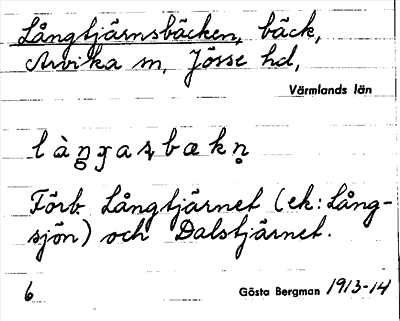 Långtjärnsbäcken, bäck,
Arvika sn, Jösse hd,
Värmlands län
Förb. Långtjärnet (ek: Lång-
sjön) och Dalstjärnet.
6
Gösta Bergman 1913-14